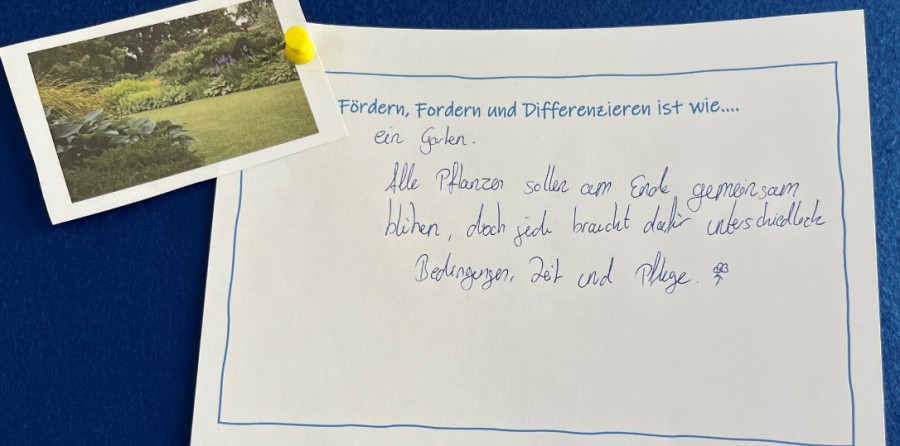 Fördern, Fordern und Differenzieren ist wie....
ein Garten.
Alle Pflanzen sollen am Ende gemeinsam
blühen, doch jede braucht dafür unterschiedliche
Bedingungen, Zeit und Pflege.